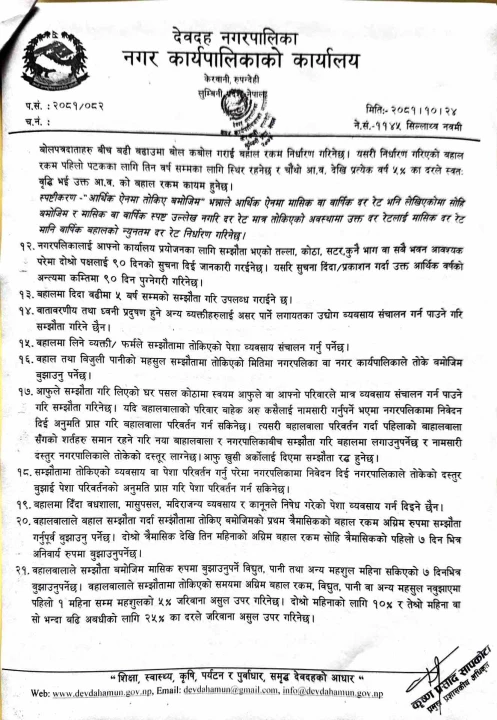 देवदह नगरपालिका
नगर कार्यपालिकाको कार्यालय
केरवानी, रुपन्देही
लुम्बिनी प्रदेश, नेपाल
प.सं. : २०८१/०८२
मितिः- २०८१।१०।२४
च.नं. :
ने.सं.-११४५ सिल्लाथ्व नवमी
बोलपत्रदाताहरु बीच बढी बढाउमा बोल कबोल गराई बहाल रकम निर्धारण गरिनेछ। यसरी निर्धारण गरिएको बहाल
रकम पहिलो पटकका लागि तिन वर्ष सम्मका लागि स्थिर रहनेछ र चौथो आ.व. देखि प्रत्येक वर्ष ५% का दरले स्वतः
बृद्धि भई उक्त आ.व. को बहाल रकम कायम हुनेछ।
स्पष्टीकरण -"आर्थिक ऐनमा तोकिए बमोजिम" भन्नाले आर्थिक ऐनमा मासिक वा वार्षिक दर रेट भनि लेखिएकोमा सोहि
बमोजिम र मासिक वा वार्षिक स्पष्ट उल्लेख नगरि दर रेट मात्र तोकिएको अवस्थामा उक्त दर रेटलाई मासिक दर रेट
मानि वार्षिक बहालको न्युनतम दर रेट निर्धारण गरिनेछ।
१२. नगरपालिकालाई आफ्नो कार्यालय प्रयोजनका लागि सम्झौता भएको तल्ला, कोठा, सटर,कुनै भाग वा सबै भवन आवश्यक
परेमा दोश्रो पक्षलाई ९० दिनको सुचना दिई जानकारी गराईनेछ। यसरि सुचना दिंदा/प्रकाशन गर्दा उक्त आर्थिक वर्षको
अन्त्यमा कम्तिमा ९० दिन पुग्नेगरी गरिनेछ।
१३. बहालमा दिंदा बढीमा ५ वर्ष सम्मको सम्झौता गरि उपलब्ध गराईने छ।
१४. वातावरणीय तथा ध्वनी प्रदुषण हुने अन्य व्यक्तीहरुलाई असर पार्ने लगायतका उद्योग व्यवसाय संचालन गर्न पाउने गरि
सम्झौता गरिने छैन।
१५. बहालमा लिने व्यक्ती/ फर्मले सम्झौतामा तोकिएको पेशा व्यवसाय संचालन गर्नु पर्नेछ।
१६. बहाल तथा बिजुली पानीको महसुल सम्झौतामा तोकिएको मितिमा नगरपालिका वा नगर कार्यपालिकाले तोके बमोजिम
बुझाउनु पर्नेछ।
१७. आफुले सम्झौता गरि लिएको घर पसल कोठामा स्वयम आफुले वा आफ्नो परिवारले मात्र व्यवसाय संचालन गर्न पाउने
गरि सम्झौता गरिनेछ। यदि बहालवालाको परिवार बाहेक अरु कसैलाई नामसारी गर्नुपर्ने भएमा नगरपालिकामा निवेदन
दिई अनुमति प्राप्त गरि बहालवाला परिवर्तन गर्न सकिनेछ। त्यसरी बहालवाला परिवर्तन गर्दा पहिलाको बाहालवाला
सँगको शर्तहरु समान रहने गरि नया बाहालवाला र नगरपालिकाबीच सम्झौता गरि बहालमा लगाउनुपर्नेछ र नामसारी
दस्तुर नगरपालिकाले तोकेको दस्तूर लाग्नेछ। आफु खुसी अर्कोलाई दिएमा सम्झौता रद्ध हुनेछ।
१८. सम्झौतामा तोकिएको व्यवसाय वा पेशा परिवर्तन गर्नु परेमा नगरपालिकामा निवेदन दिई नगरपालिकाले तोकेको दस्तुर
बुझाई पेशा परिवर्तनको अनुमति प्राप्त गरि पेशा परिवर्तन गर्न सकिनेछ।
१९. बहालमा दिंदा वधशाला, मासुपसल, मदिराजन्य व्यवसाय र कानूनले निषेध गरेको पेशा व्यवसाय गर्न दिइने छैन।
२०. बहालवालाले बहाल सम्झौता गर्दा सम्झौतामा तोकिए बमोजिमको प्रथम त्रैमासिकको बहाल रकम अग्रिम रुपमा सम्झौता
गर्नुपूर्व बुझाउनु पर्नेछ। दोश्रो त्रैमासिक देखि तिन महिनाको अग्रिम बहाल रकम सोहि त्रैमासिकको पहिलो ७ दिन भित्र
अनिवार्य रुपमा बुझाउनुपर्नेछ।
२१. बहालवालाले सम्झौता बमोजिम मासिक रुपमा बुझाउनुपर्ने विधुत, पानी तथा अन्य महशुल महिना सकिएको ७ दिनभित्र
बुझाउनुपर्नेछ। बहालवालाले सम्झौतामा तोकिएको समयमा अग्रिम बहाल रकम, विधुत, पानी वा अन्य महसुल नवुझाएमा
पहिलो १ महिना सम्म महशुलको ५% जरिवाना असुल उपर गरिनेछ। दोश्रो महिनाको लागि १०% र तेश्रो महिना वा
सो भन्दा बढि अवधीको लागि २५% का दरले जरिवाना असुल उपर गरिनेछ।
"शिक्षा, स्वास्थ्य, कृषि, पर्यटन र पुर्वाधार, समृद्ध देवदहको आधार"
Web: www.devdahamun.gov.np, Email: devdahamun@gmail.com, info@devdahamun.gov.np
कृष्ण प्रसाद सापकोटा
प्रमुख प्रशासकीय अधिकृत